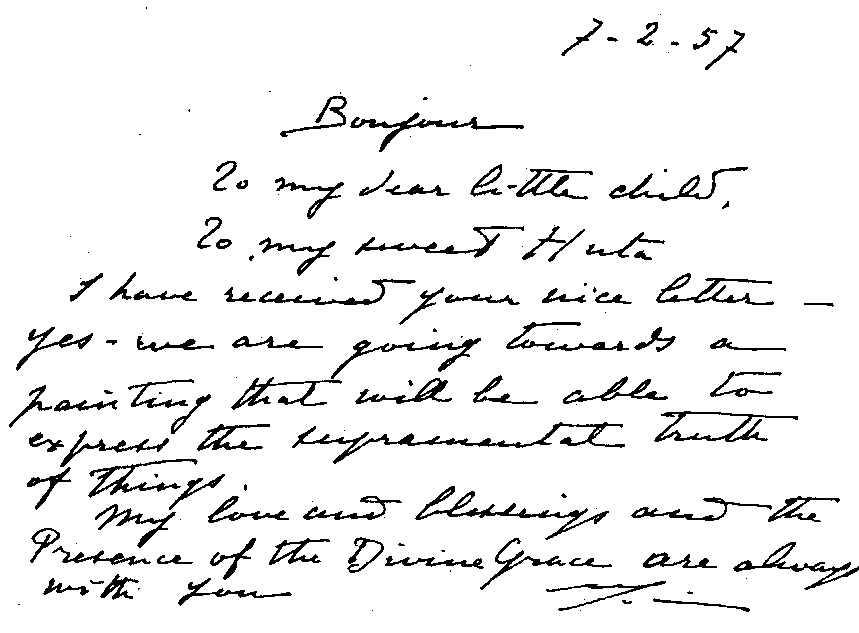 7-2-57
Bonjour
To my dear little child,
To my sweet Huta
I have received your nice letter –
yes - we are going towards a
painting that will be able to
express the supramental truth
of things.
My love and blessings and the
Presence of the Divine Grace are always
with you